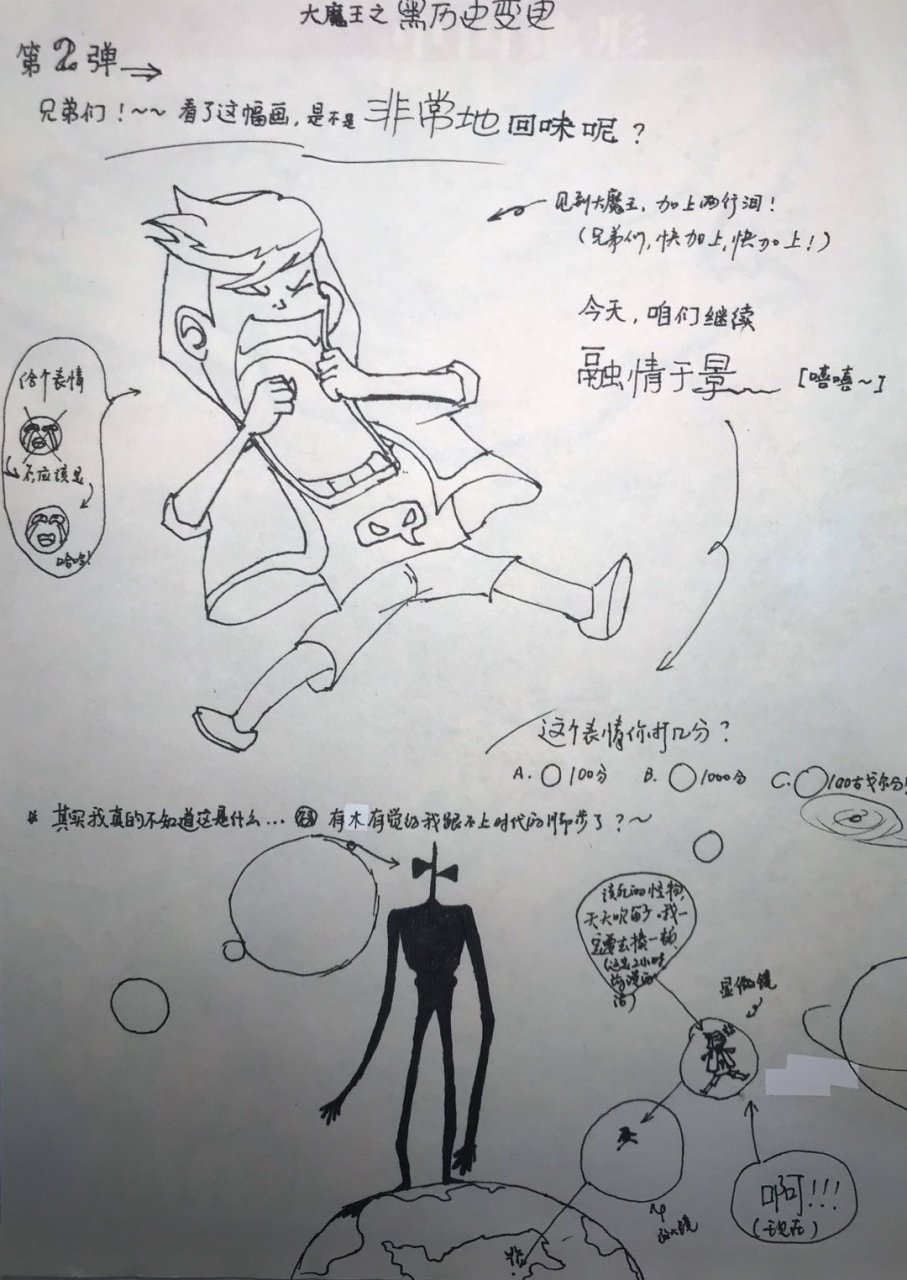 大魔王之黑历史变更
第2弹
兄弟们！~~ 看了这幅画，是不是非常地回味呢？
见到大魔王，加上两行泪！
（兄弟们，快加上，快加上！）
今天，咱们继续
融情于景 [嘻嘻~]
给个表情
不，应该是
哈哈！
这个表情你打几分？
A. 100分 B. 1000分 C. 100古戈尔分！
* 其实我真的不知道这是什么… 有木有觉的我跟不上时代的脚步了？~
该死的怪物，
天天吹笛子。我一
定要去揍一顿
(这是2小时
前漫画的
话)
显微镜
放大镜
啊!!!
(现在)